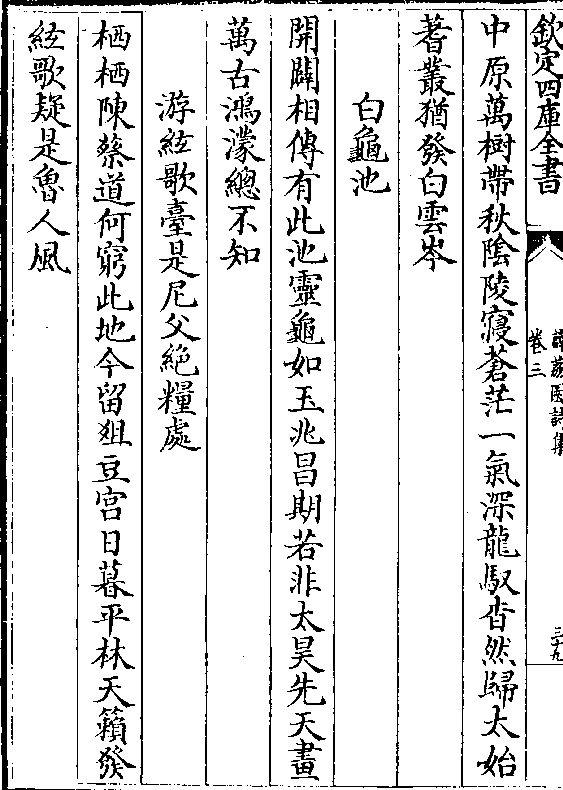 欽定四庫全書
薜荔園詩集
卷三
三十九
中原萬樹帶秋陰陵寢蒼茫一氣深龍馭杳然歸太始
蓍叢猶發白雲岑
白龜池
開闢相傳有此池靈龜如玉兆昌期若非太昊先天畫
萬古鴻濛總不知
游絃歌臺是尼父絶糧處
栖栖陳蔡道何窮此地今留俎豆宫日暮平林天籟發
絃歌疑是魯人風